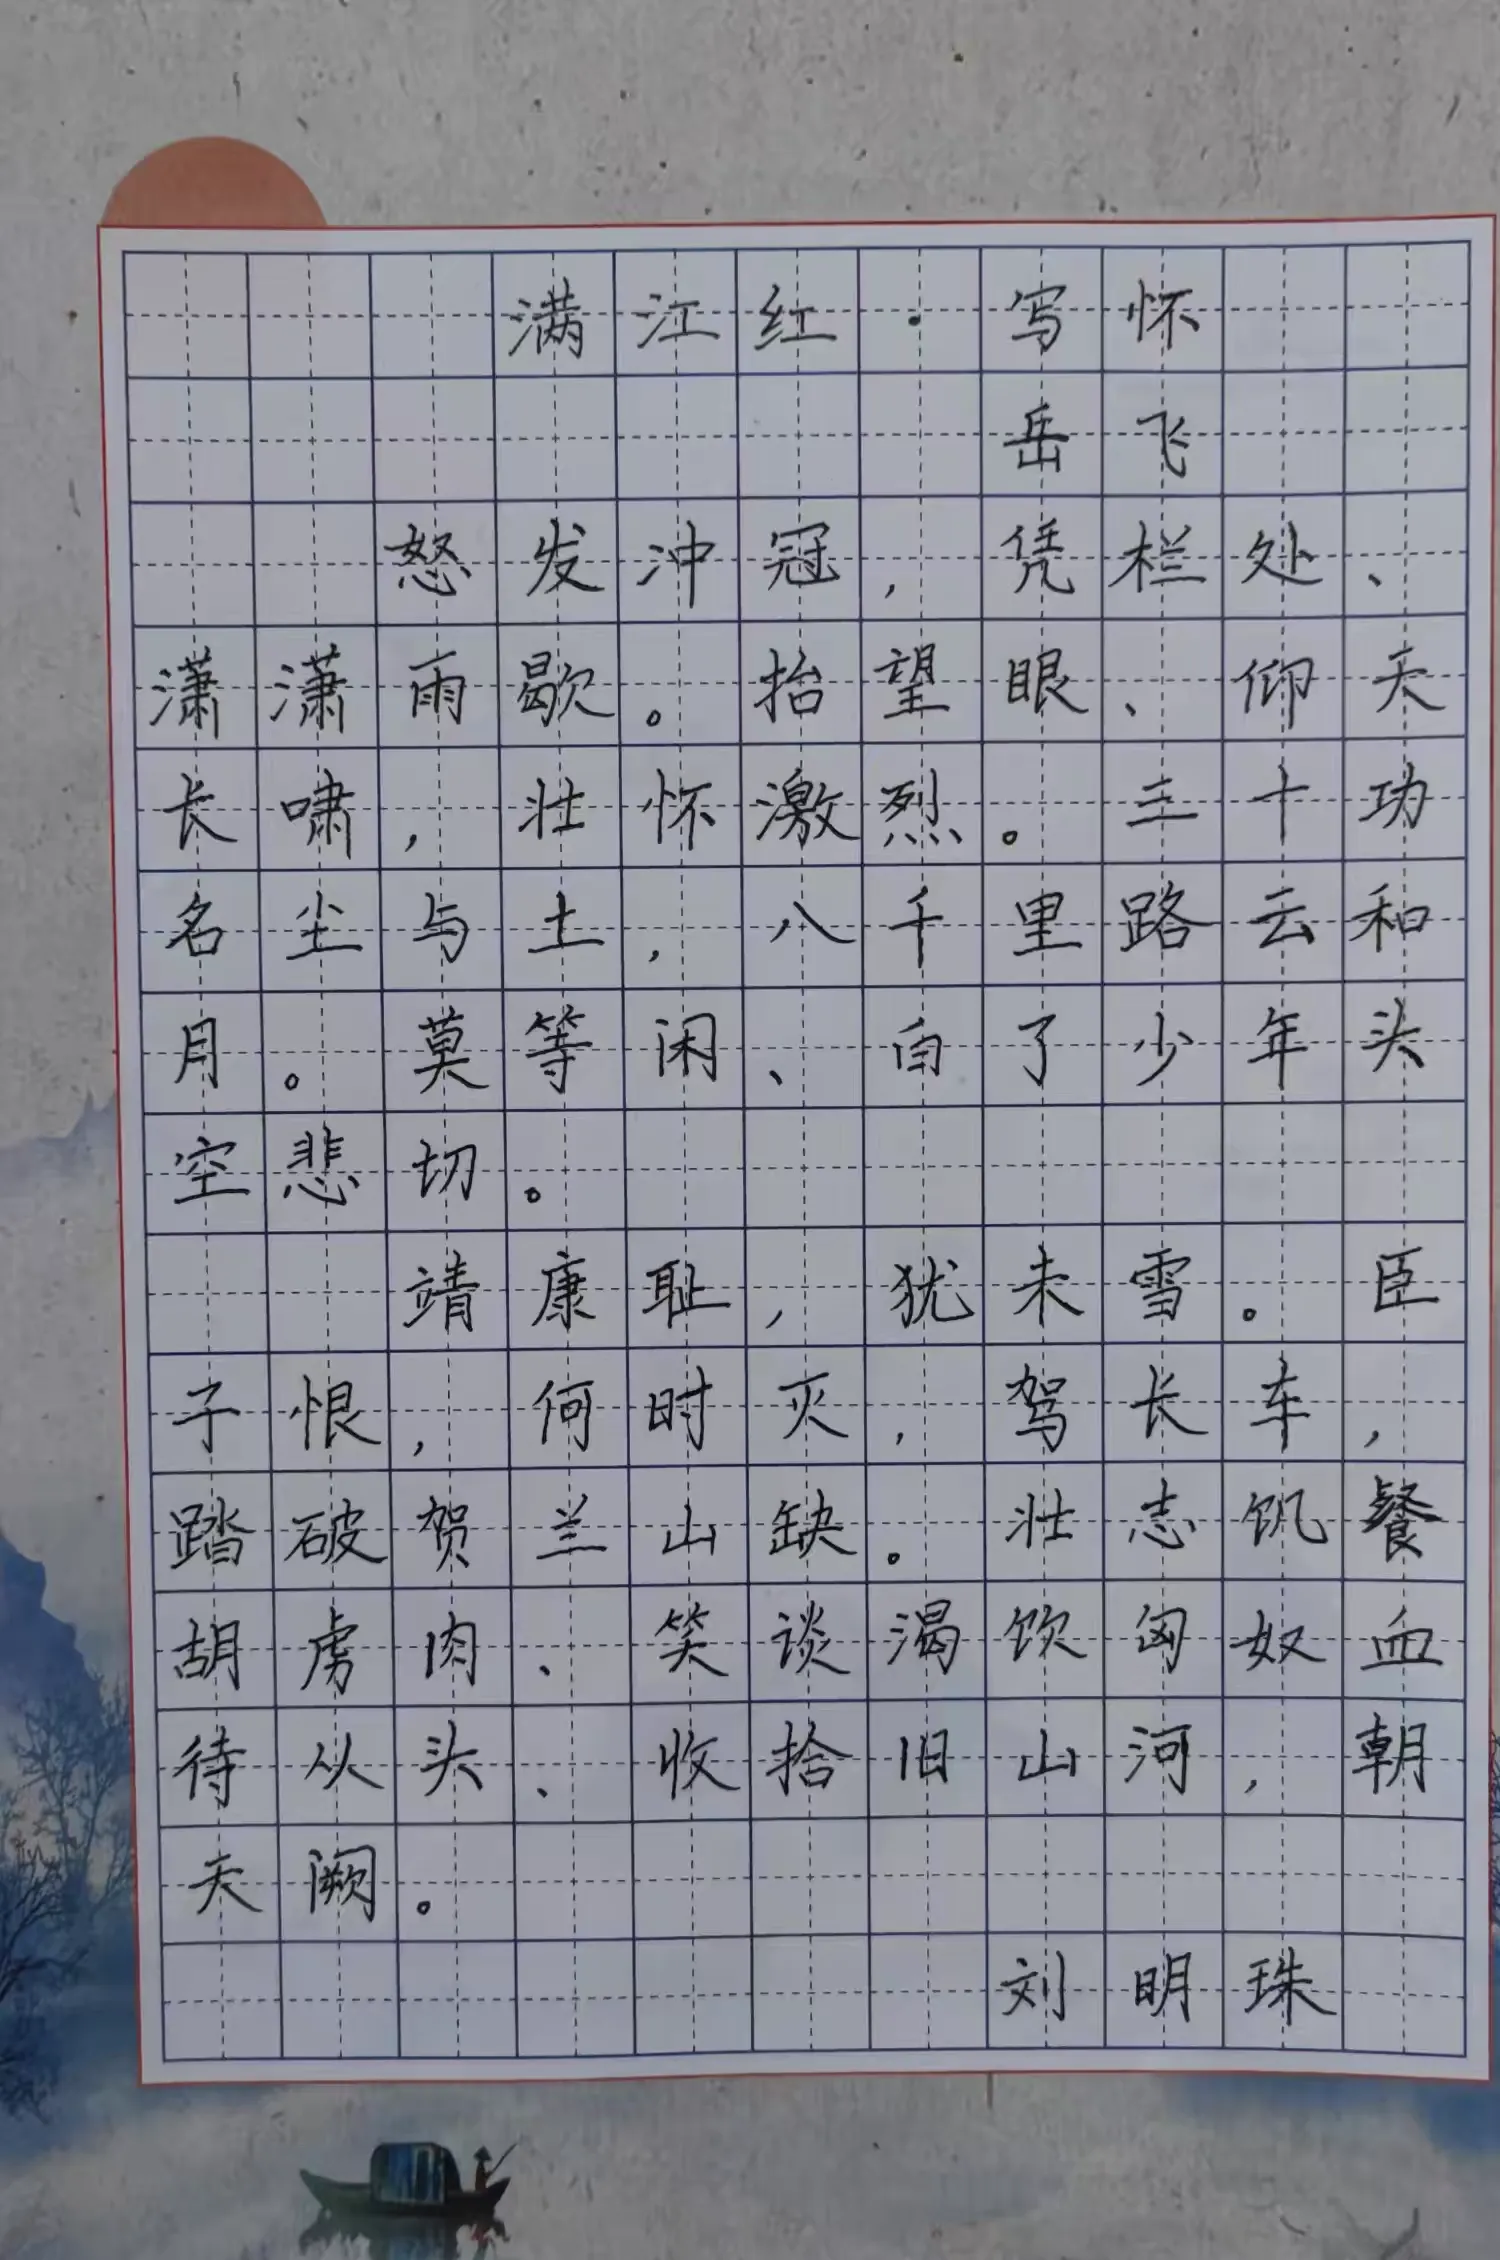 满江红·写怀
岳飞
怒发冲冠,凭栏处、
潇潇雨歇。抬望眼、仰天
长啸,壮怀激烈。三十功
名尘与土,八千里路云和
月。莫等闲、白了少年头
空悲切。
靖康耻,犹未雪。臣
子恨,何时灭,驾长车,
踏破贺兰山缺。壮志饥餐
胡虏肉、笑谈渴饮匈奴血
待从头、收拾旧山河,朝
天阙。
刘明珠